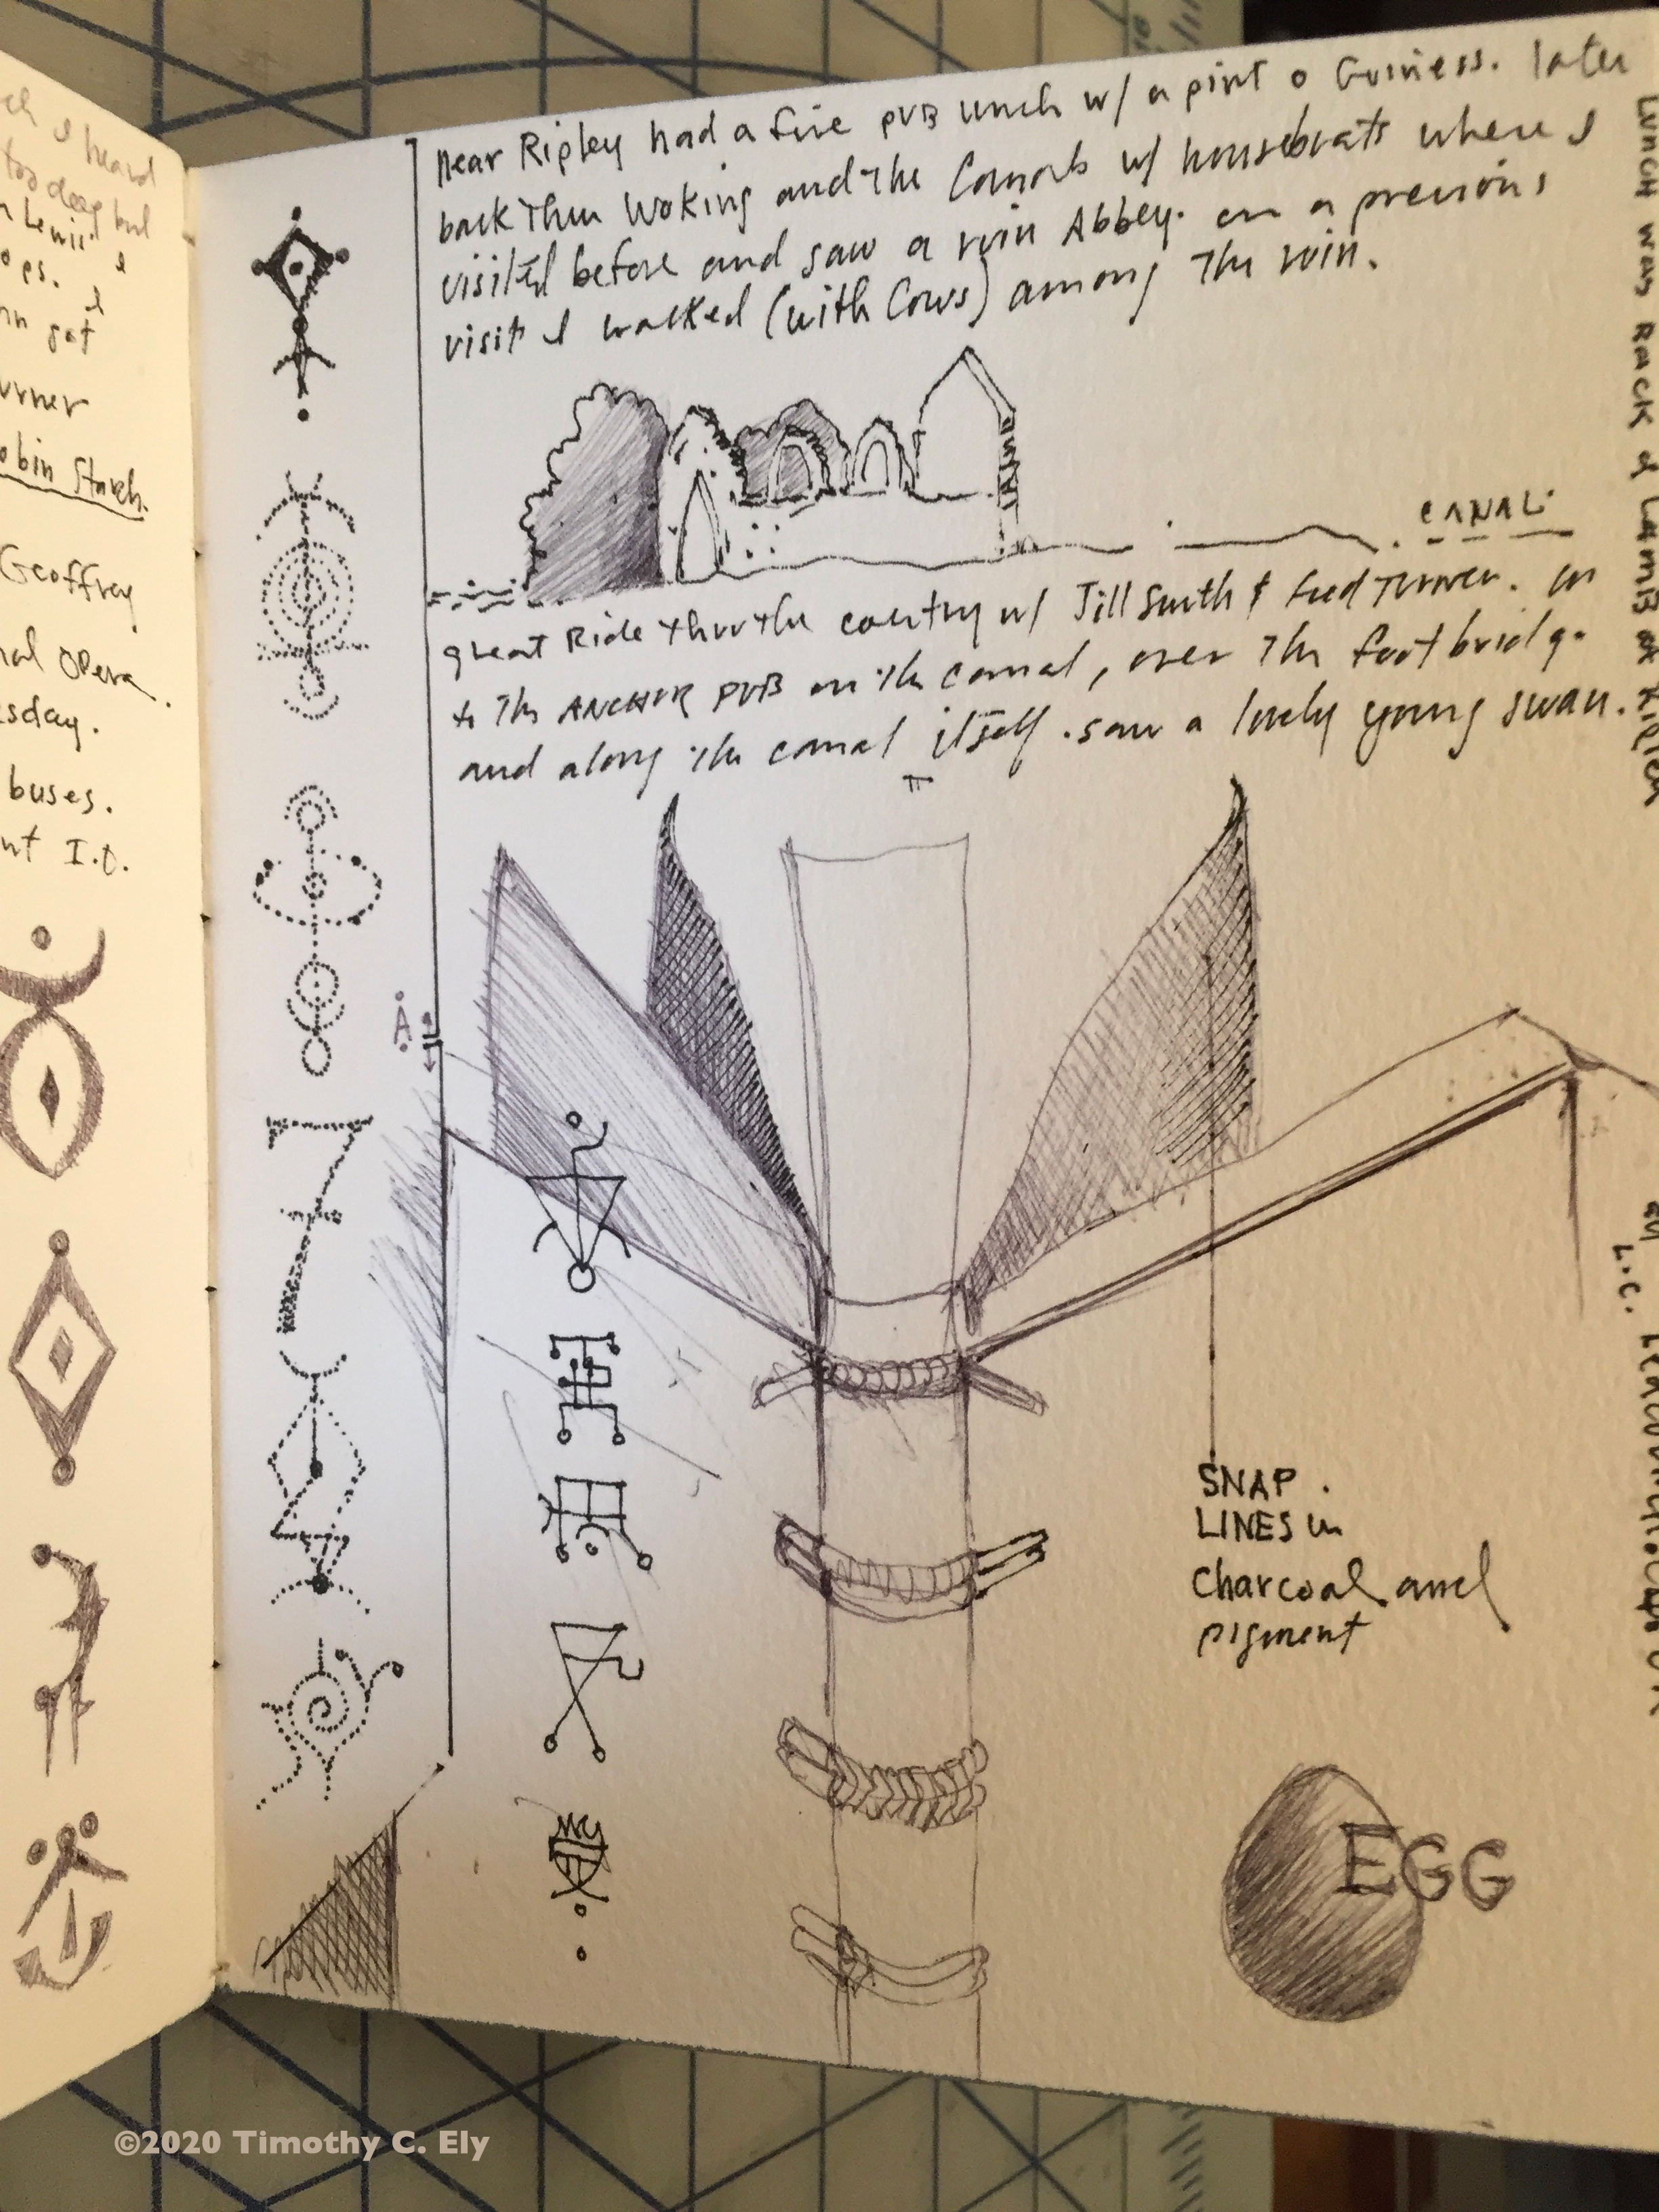 ch I heard
too deep but
n Lewis I
o es. I
nn got
urner
obin Starck.
Geoffrey
nal Opera
sday.
buses.
nt I.D.
near Ripley had a fine PUB lunch w/ a pint o Guiness. later
back thru Woking and the Canals w/ houseboats where I
visited before and saw a ruin Abbey. on a previous
visit I walked (with Cows) among the ruin.
CANAL
great Ride thru the country w/ Jill Smith & Fred Turner. on
to the ANCHOR PUB on the canal, over the foot bridge
and along the canal itself. saw a lovely young swan.
A
SNAP.
LINES in
charcoal and
pigment
EGG
LUNCH was Rack of LAMB at Ripley
L.C.
©2020 Timothy C. Ely